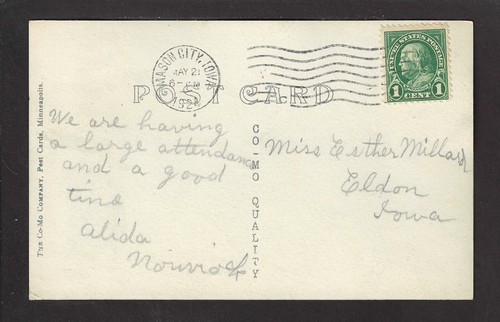 MASON CITY, IOWA
MAY 21
UNITED STATES POSTAGE
1 CENT 1
POST CARD
We are having
a large attendance
and a good
time
Alida
Miss Esther Millard
Eldon
Iowa
CO-MO QUALITY
THE CO-MO COMPANY, Post Cards, Minneapolis.